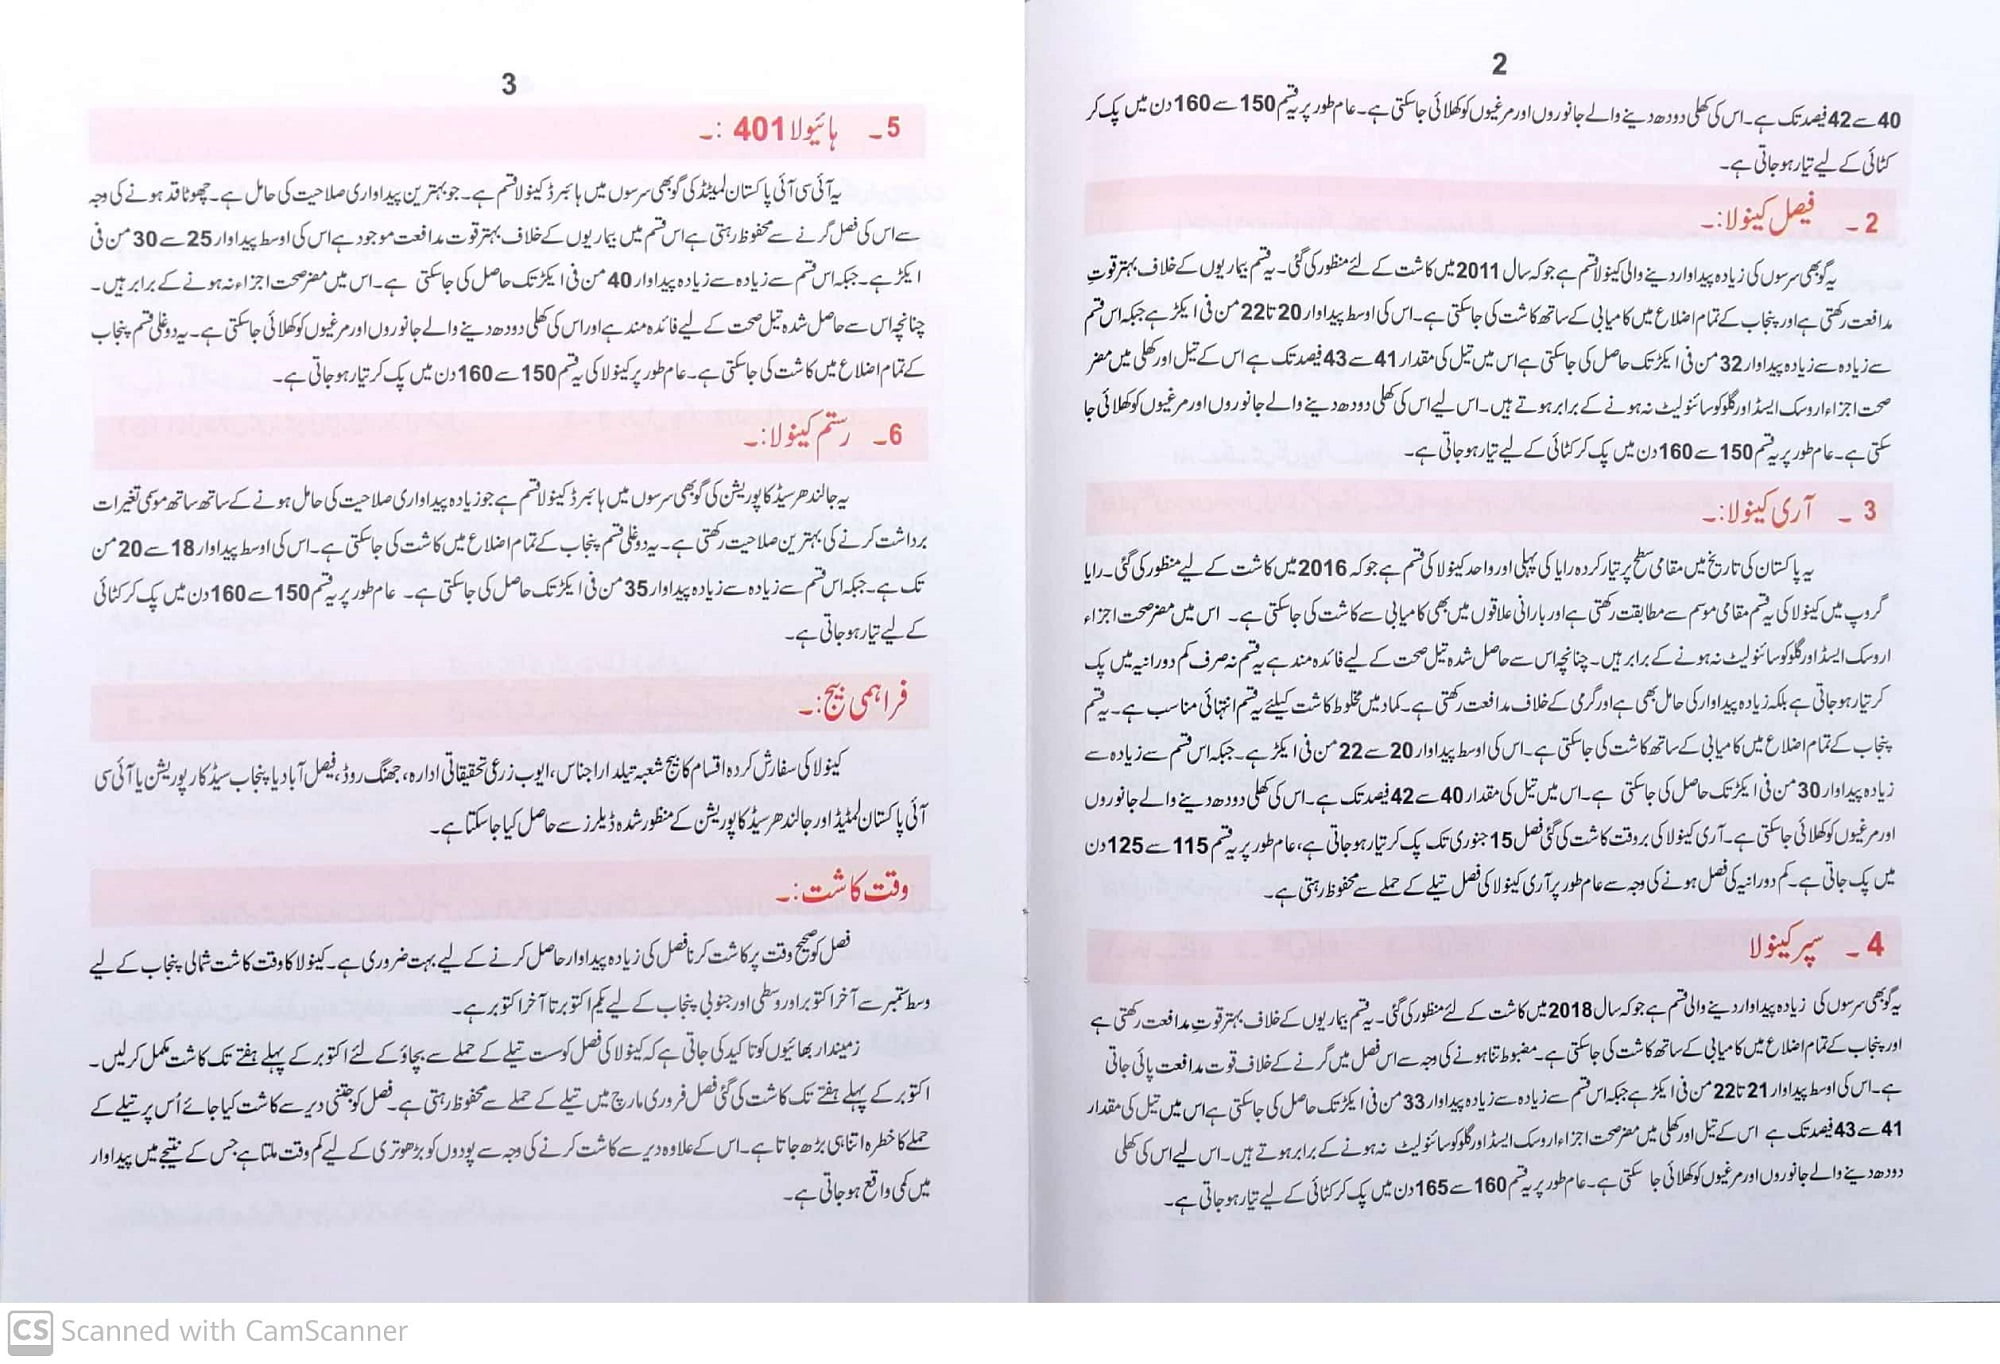 2
40 سے 42 فیصد تک ہے۔ اس کی کھلی دودھ دینے والے جانوروں اور مرغیوں کو کھلائی جاسکتی ہے۔ عام طور پر یہ قسم 150 سے 160 دن میں پک کر
کٹائی کے لیے تیار ہو جاتی ہے۔
2 ۔ فیصل کینولا:۔
یہ گوبھی سرسوں کی زیادہ پیداوار دینے والی کینولا قسم ہے جو کہ سال 2011 میں کاشت کے لئے منظور کی گئی۔ یہ قسم بیماریوں کے خلاف بہتر قوتِ
مدافعت رکھتی ہے اور پنجاب کے تمام اضلاع میں کامیابی کے ساتھ کاشت کی جاسکتی ہے۔ اس کی اوسط پیداوار 20 تا 22 من فی ایکڑ ہے جبکہ اس قسم
سے زیادہ سے زیادہ پیداوار 32 من فی ایکڑ تک حاصل کی جاسکتی ہے اس میں تیل کی مقدار 41 سے 43 فیصد تک ہے اس کے تیل اور کھلی میں مضر
صحت اجزاء اروسک ایسڈ اور گلوکوسائنولیٹ نہ ہونے کے برابر ہوتے ہیں۔ اس لیے اس کی کھلی دودھ دینے والے جانوروں اور مرغیوں کو کھلائی جا
سکتی ہے۔ عام طور پر یہ قسم 150 سے 160 دن میں پک کر کٹائی کے لیے تیار ہو جاتی ہے۔
3 ۔ آری کینولا:۔
یہ پاکستان کی تاریخ میں مقامی سطح پر تیار کردہ رایا کی پہلی اور واحد کینولا کی قسم ہے جو کہ 2016 میں کاشت کے لیے منظور کی گئی۔ رایا
گروپ میں کینولا کی یہ قسم مقامی موسم سے مطابقت رکھتی ہے اور بارانی علاقوں میں بھی کامیابی سے کاشت کی جاسکتی ہے۔ اس میں مضر صحت اجزاء
اروسک ایسڈ اور گلوکوسائنولیٹ نہ ہونے کے برابر ہیں۔ چنانچہ اس سے حاصل شدہ تیل صحت کے لیے فائدہ مند ہے یہ قسم نہ صرف کم دورانیہ میں پک
کر تیار ہو جاتی ہے بلکہ زیادہ پیداوار کی حامل بھی ہے اور گرمی کے خلاف مدافعت رکھتی ہے۔ کماد میں مخلوط کاشت کیلئے یہ قسم انتہائی مناسب ہے۔ یہ قسم
پنجاب کے تمام اضلاع میں کامیابی کے ساتھ کاشت کی جاسکتی ہے۔ اس کی اوسط پیداوار 20 سے 22 من فی ایکڑ ہے۔ جبکہ اس قسم سے زیادہ سے
زیادہ پیداوار 30 من فی ایکڑ تک حاصل کی جاسکتی ہے۔ اس میں تیل کی مقدار 40 سے 42 فیصد تک ہے۔ اس کی کھلی دودھ دینے والے جانوروں
اور مرغیوں کو کھلائی جاسکتی ہے۔ آری کینولا کی بروقت کاشت کی گئی فصل 15 جنوری تک پک کر تیار ہو جاتی ہے، عام طور پر یہ قسم 115 سے 125 دن
میں پک جاتی ہے۔ کم دورانیہ کی فصل ہونے کی وجہ سے عام طور پر آری کینولا کی فصل تیلے کے حملے سے محفوظ رہتی ہے۔
4 ۔ سپر کینولا
یہ گوبھی سرسوں کی زیادہ پیداوار دینے والی قسم ہے جو کہ سال 2018 میں کاشت کے لئے منظور کی گئی۔ یہ قسم بیماریوں کے خلاف بہتر قوتِ مدافعت رکھتی ہے
اور پنجاب کے تمام اضلاع میں کامیابی کے ساتھ کاشت کی جاسکتی ہے۔ مضبوط تنا ہونے کی وجہ سے اس فصل میں گرنے کے خلاف قوت مدافعت پائی جاتی
ہے۔ اس کی اوسط پیداوار 21 تا 22 من فی ایکڑ ہے جبکہ اس قسم سے زیادہ سے زیادہ پیداوار 33 من فی ایکڑ تک حاصل کی جاسکتی ہے اس میں تیل کی مقدار
41 سے 43 فیصد تک ہے اس کے تیل اور کھلی میں مضر صحت اجزاء اروسک ایسڈ اور گلوکوسائنولیٹ نہ ہونے کے برابر ہوتے ہیں۔ اس لیے اس کی کھلی
دودھ دینے والے جانوروں اور مرغیوں کو کھلائی جا سکتی ہے۔ عام طور پر یہ قسم 160 سے 165 دن میں پک کر کٹائی کے لیے تیار ہو جاتی ہے۔
3
5 ۔ ہائیولا 401 :۔
یہ آئی سی آئی پاکستان لمیٹڈ کی گوبھی سرسوں میں ہائبرڈ کینولا قسم ہے۔ جو بہترین پیداواری صلاحیت کی حامل ہے۔ چھوٹا قد ہونے کی وجہ
سے اس کی فصل گرنے سے محفوظ رہتی ہے اس قسم میں بیماریوں کے خلاف بہتر قوت مدافعت موجود ہے اس کی اوسط پیداوار 25 سے 30 من فی
ایکڑ ہے۔ جبکہ اس قسم سے زیادہ سے زیادہ پیداوار 40 من فی ایکڑ تک حاصل کی جاسکتی ہے۔ اس میں مضر صحت اجزاء نہ ہونے کے برابر ہیں۔
چنانچہ اس سے حاصل شدہ تیل صحت کے لیے فائدہ مند ہے اور اس کی کھلی دودھ دینے والے جانوروں اور مرغیوں کو کھلائی جاسکتی ہے۔ یہ دوغلی قسم پنجاب
کے تمام اضلاع میں کاشت کی جاسکتی ہے۔ عام طور پر کینولا کی یہ قسم 150 سے 160 دن میں پک کر تیار ہو جاتی ہے۔
6۔ رستم کینولا:۔
یہ جالندھر سیڈ کاپوریشن کی گوبھی سرسوں میں ہائبرڈ کینولا قسم ہے جو زیادہ پیداواری صلاحیت کی حامل ہونے کے ساتھ ساتھ موسمی تغیرات
برداشت کرنے کی بہترین صلاحیت رکھتی ہے۔ یہ دوغلی قسم پنجاب کے تمام اضلاع میں کاشت کی جاسکتی ہے۔ اس کی اوسط پیداوار 18 سے 20 من
تک ہے۔ جبکہ اس قسم سے زیادہ سے زیادہ پیداوار 35 من فی ایکڑ تک حاصل کی جاسکتی ہے۔ عام طور پر یہ قسم 150 سے 160 دن میں پک کر کٹائی
کے لیے تیار ہو جاتی ہے۔
فراہمی بیج:۔
کینولا کی سفارش کردہ اقسام کا بیج شعبہ تیلدار اجناس، ایوب زرعی تحقیقاتی ادارہ، جھنگ روڈ، فیصل آباد یا پنجاب سیڈ کارپوریشن یا آئی سی
آئی پاکستان لمٹیڈ اور جالندھر سیڈ کاپوریشن کے منظور شدہ ڈیلرز سے حاصل کیا جاسکتا ہے۔
وقت کاشت:۔
فصل کو صحیح وقت پر کاشت کرنا فصل کی زیادہ پیداوار حاصل کرنے کے لیے بہت ضروری ہے۔ کینولا کا وقت کاشت شمالی پنجاب کے لیے
وسط ستمبر سے آخر اکتوبر اور وسطی اور جنوبی پنجاب کے لیے یکم اکتوبر تا آخر اکتوبر ہے۔
زمیندار بھائیوں کو تاکید کی جاتی ہے کہ کینولا کی فصل کو سست تیلے کے حملے سے بچاؤ کے لئے اکتوبر کے پہلے ہفتے تک کاشت مکمل کر لیں۔
اکتوبر کے پہلے ہفتے تک کاشت کی گئی فصل فروری مارچ میں تیلے کے حملے سے محفوظ رہتی ہے۔ فصل کو جتنی دیر سے کاشت کیا جائے اُس پر تیلے کے
حملے کا خطرہ اتنا ہی بڑھ جاتا ہے۔ اس کے علاوہ دیر سے کاشت کرنے کی وجہ سے پودوں کو بڑھوتری کے لیے کم وقت ملتا ہے جس کے نتیجے میں پیداوار
میں کمی واقع ہو جاتی ہے۔
CS Scanned with CamScanner